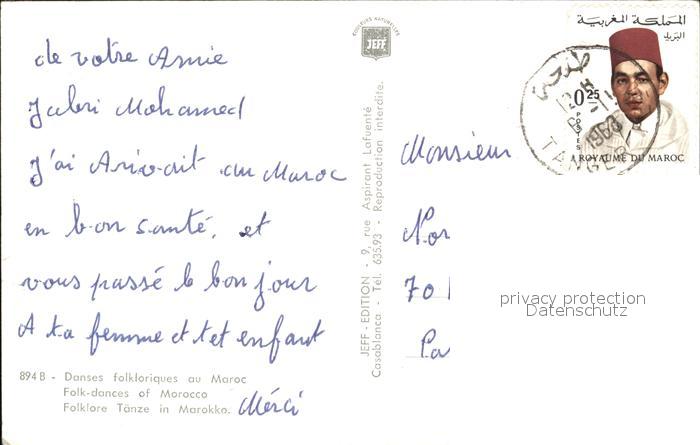 de votre Amie
Jabri Mohamed
J'ai Arivait au Maroc
en bon santé. et
vous passé le bon jour
A ta femme et tet enfant
Mérci
894 B - Danses folkloriques au Maroc
Folk-dances of Morocco
Folklore Tänze in Marokko.
COULEURS NATURELLES
JEFF
JEFF-EDITION - 9, rue Aspirant Lafuenté
Casablanca - Tél. 635.93 - Reproduction interdite.
المملكة المغربية
البريد
0.25
POSTES
ROYAUME DU MAROC
طنجة
TANGER
Monsieur
Nor
701
Pa
privacy protection
Datenschutz